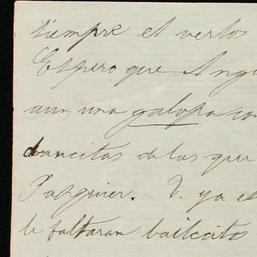 siempre el verlos
Espero que Angi
aun una galopa con
dancitas de las que
Pasquier. V. ya es
le faltaran bailecitos